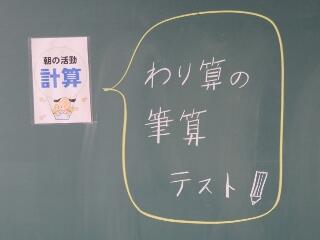 朝の活動
計算
わり算の
筆算
テスト